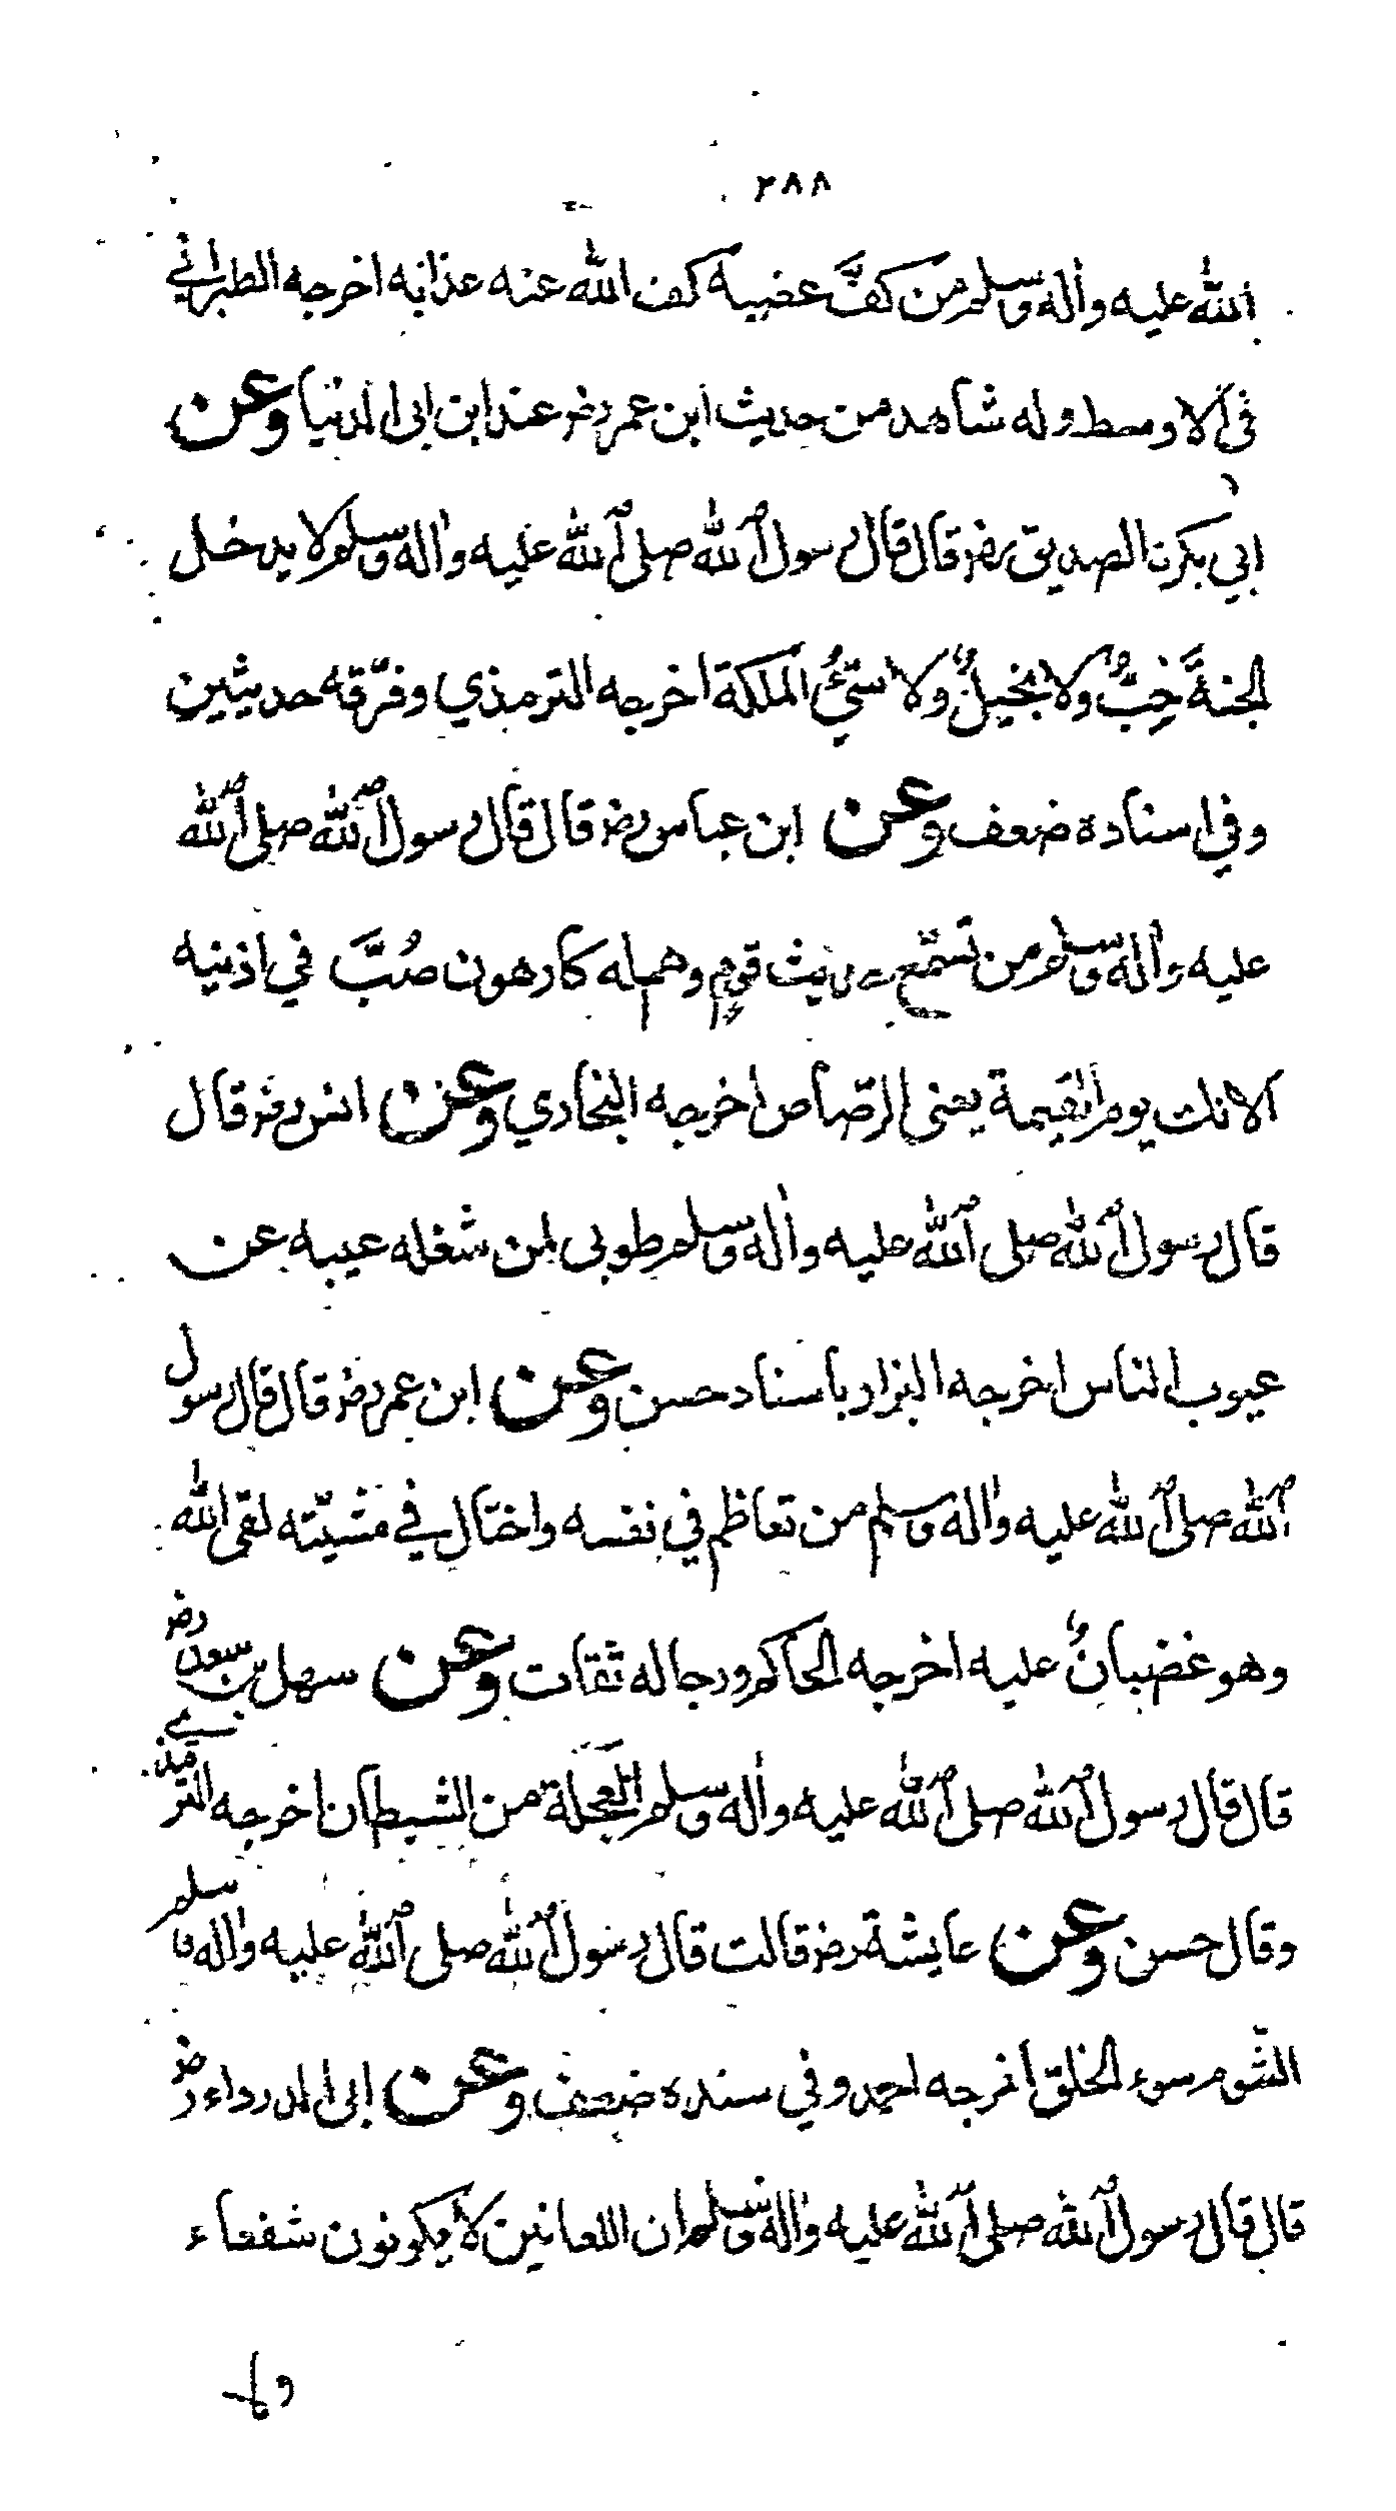 ٢٨٨
الله عليه واٰله وسلم من كفَّ غضبه كف الله عنه عذابه اخرجه الطبراني
في الاوسط وله شاهد من حديث ابن عمر رضـ عند ابن ابى الدنيا وعن
ابي بكرن الصديق رضـ قال قال رسول الله صلى الله عليه واٰله وسلم لا يدخل
الجنةَ خِبٌّ ولا بخيلٌ ولا سَيّئُ الملكة اخرجه الترمذي وفرّقه حديثين
وفي اسناده ضعف وعن ابن عباس رضـ قال قال رسول الله صلى الله
عليه واٰله وسلم من تسمّع حديث قومٍ وهم له كارهون صُبَّ في اذنيه
الانك يوم القيمة يعنى الرّصاص اخرجه البخاري وعن انس رضـ قال
قال رسول الله صلى الله عليه واٰله وسلم طوبى لمن شغله عيبه عن
عيوب الناس اخرجه البزار باسناد حسن وعن ابن عمر رضـ قال قال رسول
الله صلى الله عليه واٰله وسلم من تعاظم في نفسه واختال في مشيّته لقى الله
وهو غضبانٌ عليه اخرجه الحاكم ورجاله ثقات وعن سهل بن سعد رضـ
قال قال رسول الله صلى الله عليه واٰله وسلم العجلة من الشيطان اخرجه الترمذي
وقال حسن وعن عايشة رضـ قالت قال رسول الله صلى الله عليه واٰله وسلم
الشّوم سوء الخلق اخرجه احمد وفي سنده ضعف وعن ابى الدرداء رضـ
قال قال رسول الله صلى الله عليه واٰله وسلم ان اللعانين لا يكونون شفعاء
ولا